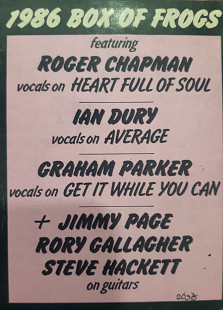 1986 BOX OF FROGS
featuring
ROGER CHAPMAN
vocals on HEART FULL OF SOUL
IAN DURY
vocals on AVERAGE
GRAHAM PARKER
vocals on GET IT WHILE YOU CAN
+ JIMMY PAGE
RORY GALLAGHER
STEVE HACKETT
on guitars